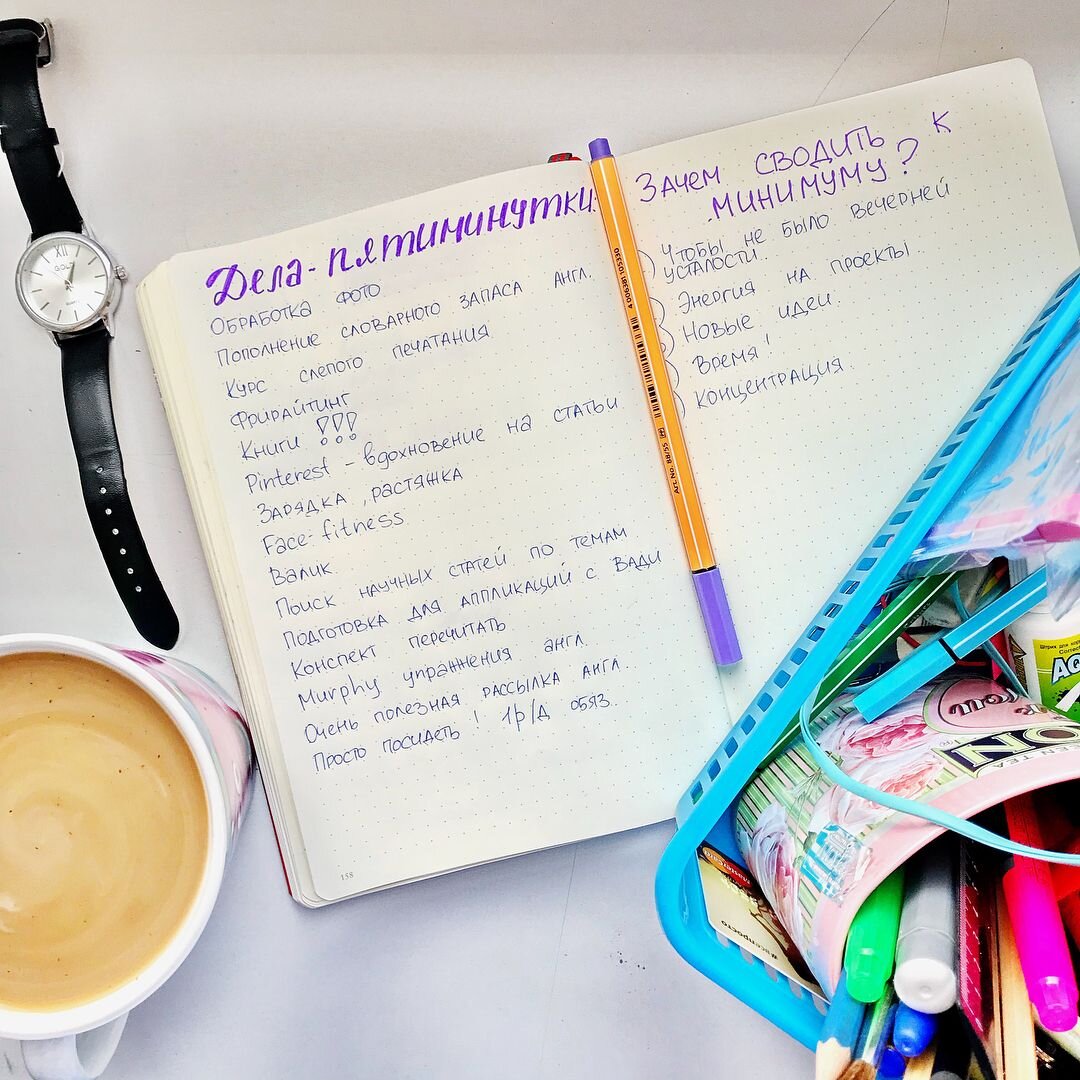 Дела-пятиминутки:
Обработка фото
Пополнение словарного запаса англ.
Курс слепого печатания
Фрирайтинг
Книги !!!
Pinterest - вдохновение на статьи
Зарядка, растяжка
Face-fitness
Валик
Поиск научных статей по темам
Подготовка для аппликаций с Вади
Конспект перечитать
Murphy упражнения англ.
Очень полезная рассылка англ.
Просто посидеть! 1р/д обяз.
158
Зачем сводить к
минимуму?
) Чтобы не было вечерней
усталости
) Энергия на проекты.
) Новые идеи.
) Время!
) Концентрация.
4 006381 105330
Art. No. 88/55
XII
GOLD
Штрих для кор
Correct
AG
ON
TEA
#всепросто